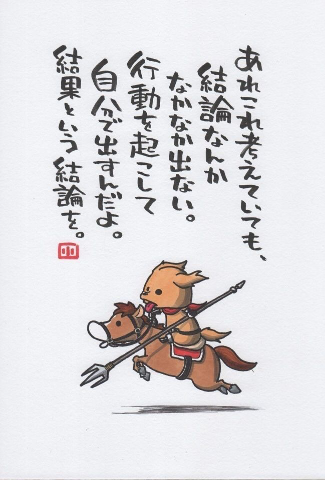 あれこれ考えていても、
結論なんか
なかなか出ない。
行動を起こして
自分で出すんだよ。
結果という結論を。